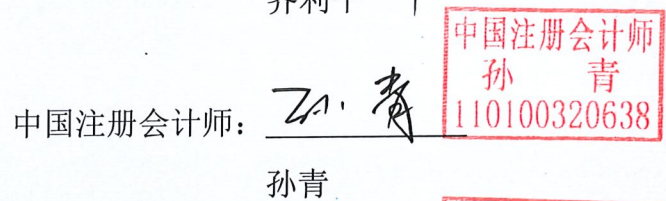 中国注册会计师
孙 青
110100320638
中国注册会计师：孙青
孙青